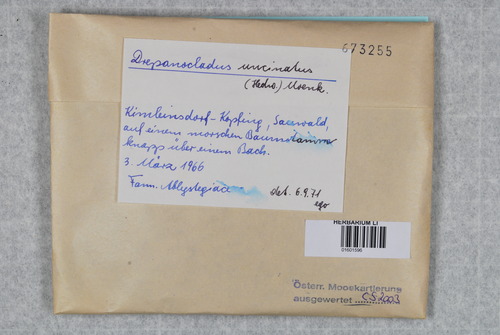 673255
Drepanocladus uncinatus
(Hedw.) Moenk.
Kimleinsdorf-Kopfing, Sauwald,
auf einem morschen Baumstamm
knapp über einem Bach.
3. März 1966
Fam. Amblystegiac
det. 6.9.71
ego
HERBARIUM LI
01601596
Österr. Mooskartierung
ausgewertet CS 2003